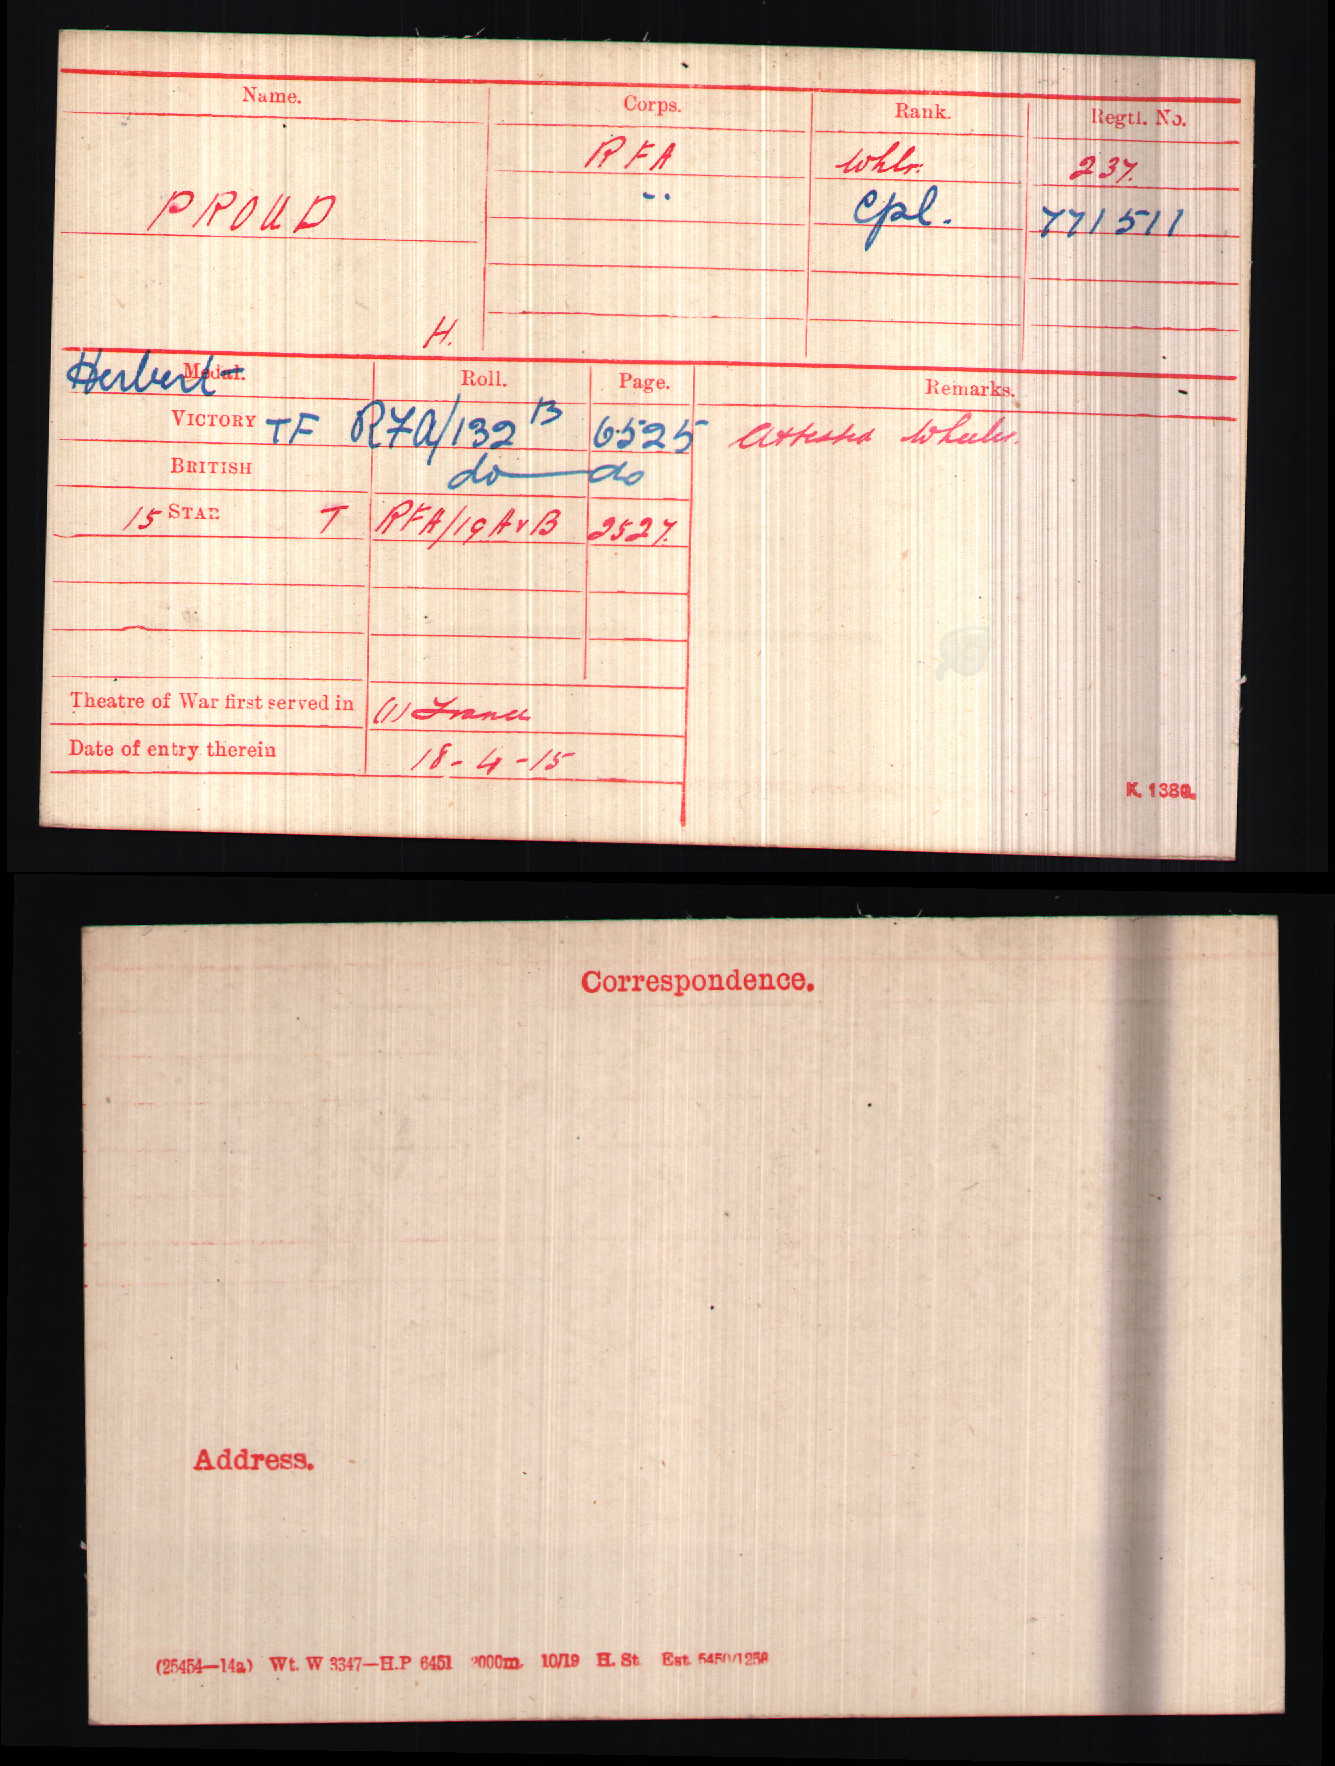 Name. Corps. Rank. Regtl. No.
RFA Whlr. 237.
PROUD " Cpl. 771511
H.
Herbert
Medal. Roll. Page. Remarks.
VICTORY TF RFA/132B 6525 Attested Wheeler.
BRITISH do do
15 STAR T RFA/19AVB 2527.
Theatre of War first served in (1) France
Date of entry therein 18-4-15
K. 1380.
Correspondence.
Address.
(25454—14a) Wt. W 3347—H.P 6451 2000m. 10/19 H. St. Est. 5450/1258